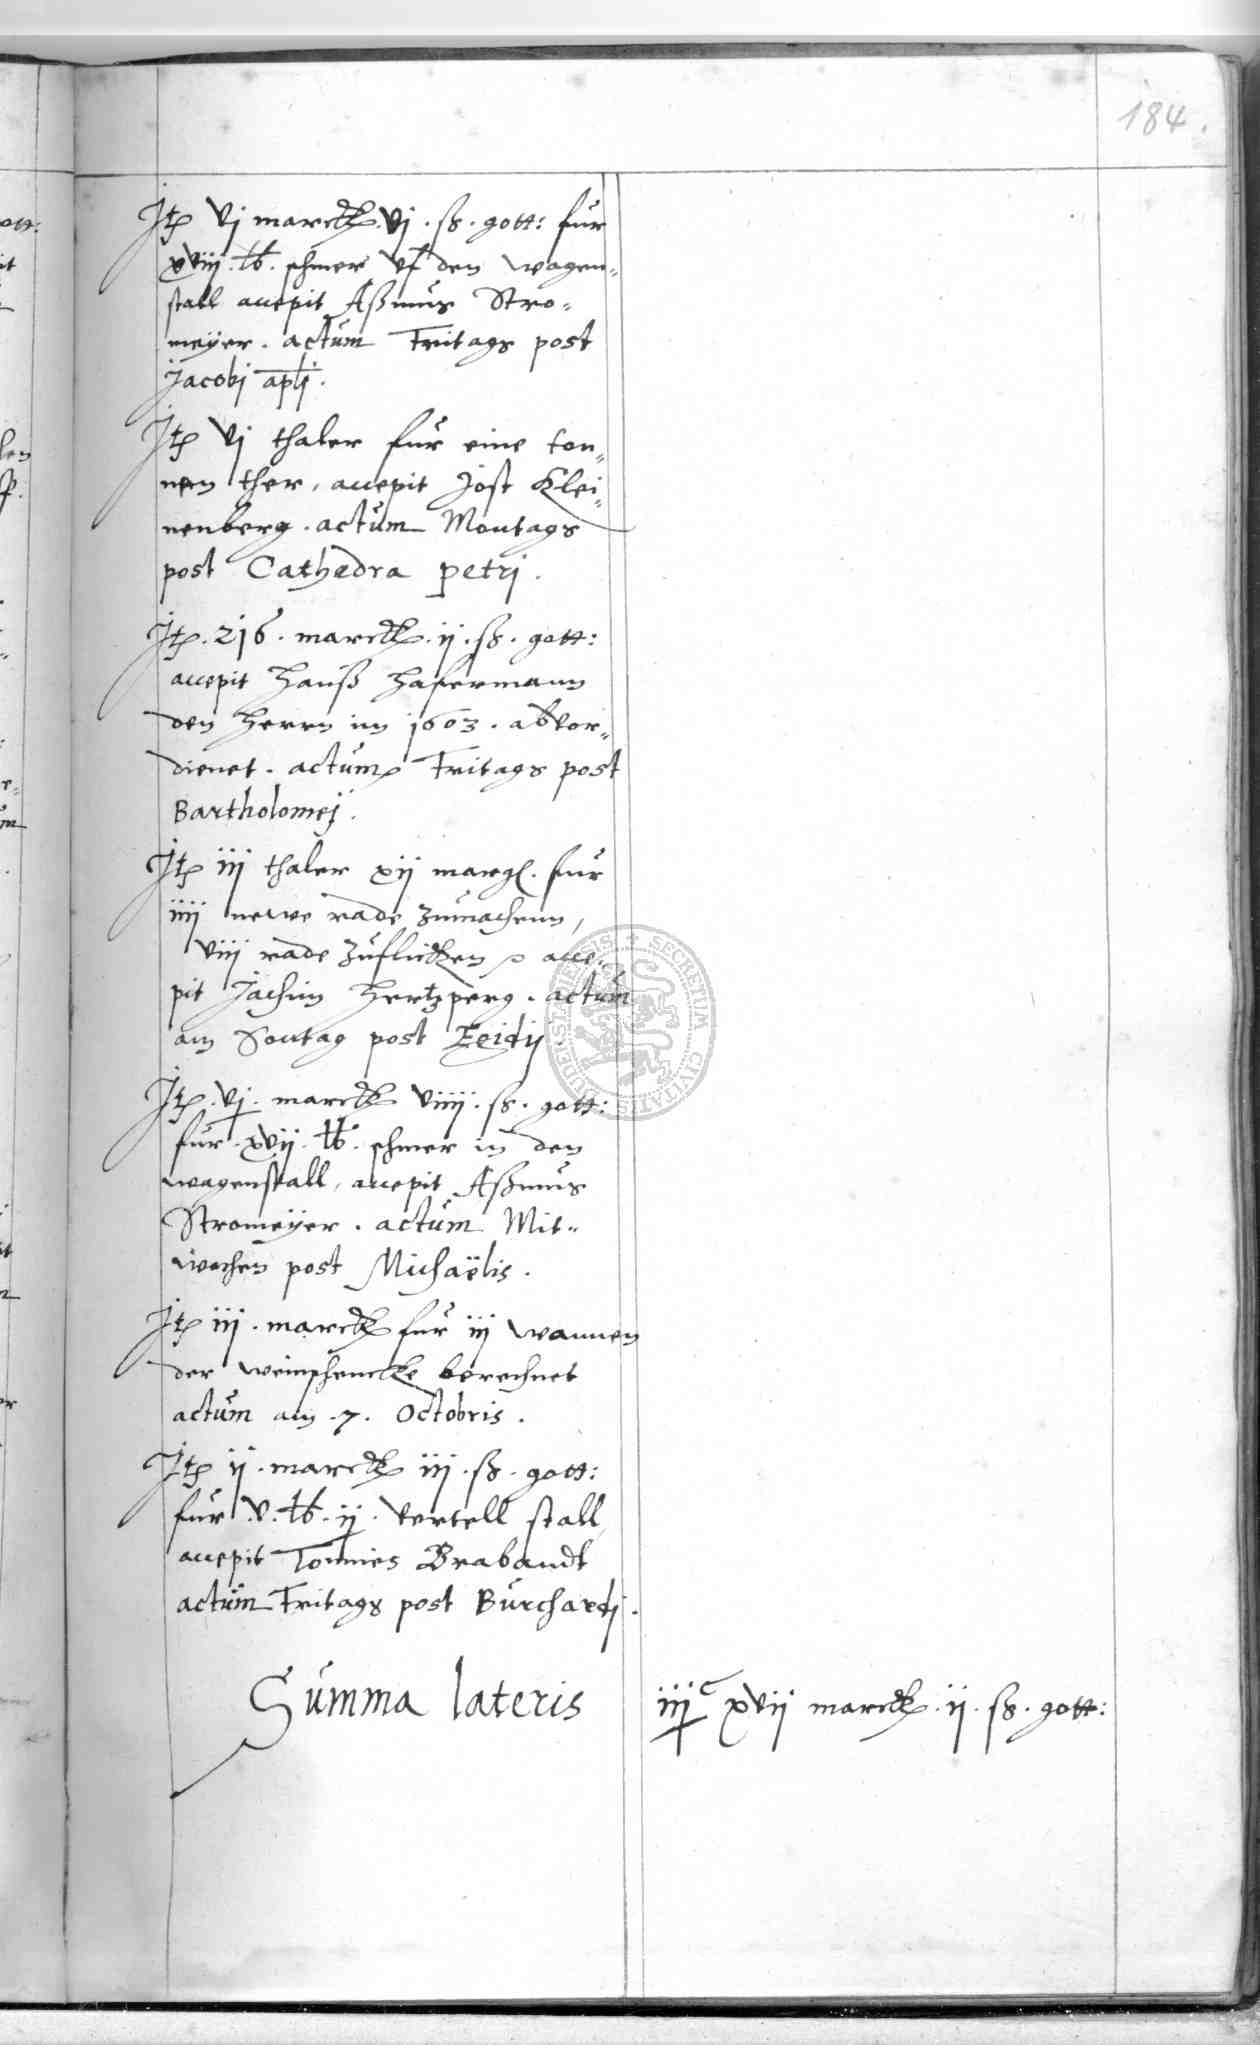 184.
Itẽ vj marck vj. ß. gott: fur
xviij. ℔. schmer vf den wagen„
stall accepit Aßmus Stro„
meÿer. actum Fritags post
Jacobj apłj.
Itẽ vj thaler fur eine ton„
nen ther, accepit Jost Klei„
nenberg. actum Montags
post Cathedra petrj.
Itẽ. 216. marck. ij. ß. gott:
accepit Hanß Hafermann
den Herrn im 1603. abvor„
dienet. actum Fritags post
Bartholomej.
Itẽ iij thaler xij margl. fur
iiij newe rade zumachenn,
viij rade zuflicken accе„
pit Jachim Hertzperg. actum
am Sontag post Egidij
Itẽ. vj. marck viiij. ß. gott:
fur. xvij. ℔. schmer in den
wagenstall, accepit Aßmus
Stromeÿer. actum Mit„
wochen post Michaëlis.
Itẽ iij. marck fur iij wannen
der weinschencke berechnet
actum am. 7. Octobris.
Itẽ ij. marck iij. ß. gott:
fur v. ℔. ij. vertell stall,
accepit Tonnies Brabandt
actum Fritags post Burchardj.
Summa lateris iij<sup>c</sup> xvij marck. ij. ß. gott:
SECRETIM CIVITATIS DUDERSTADIENSIS